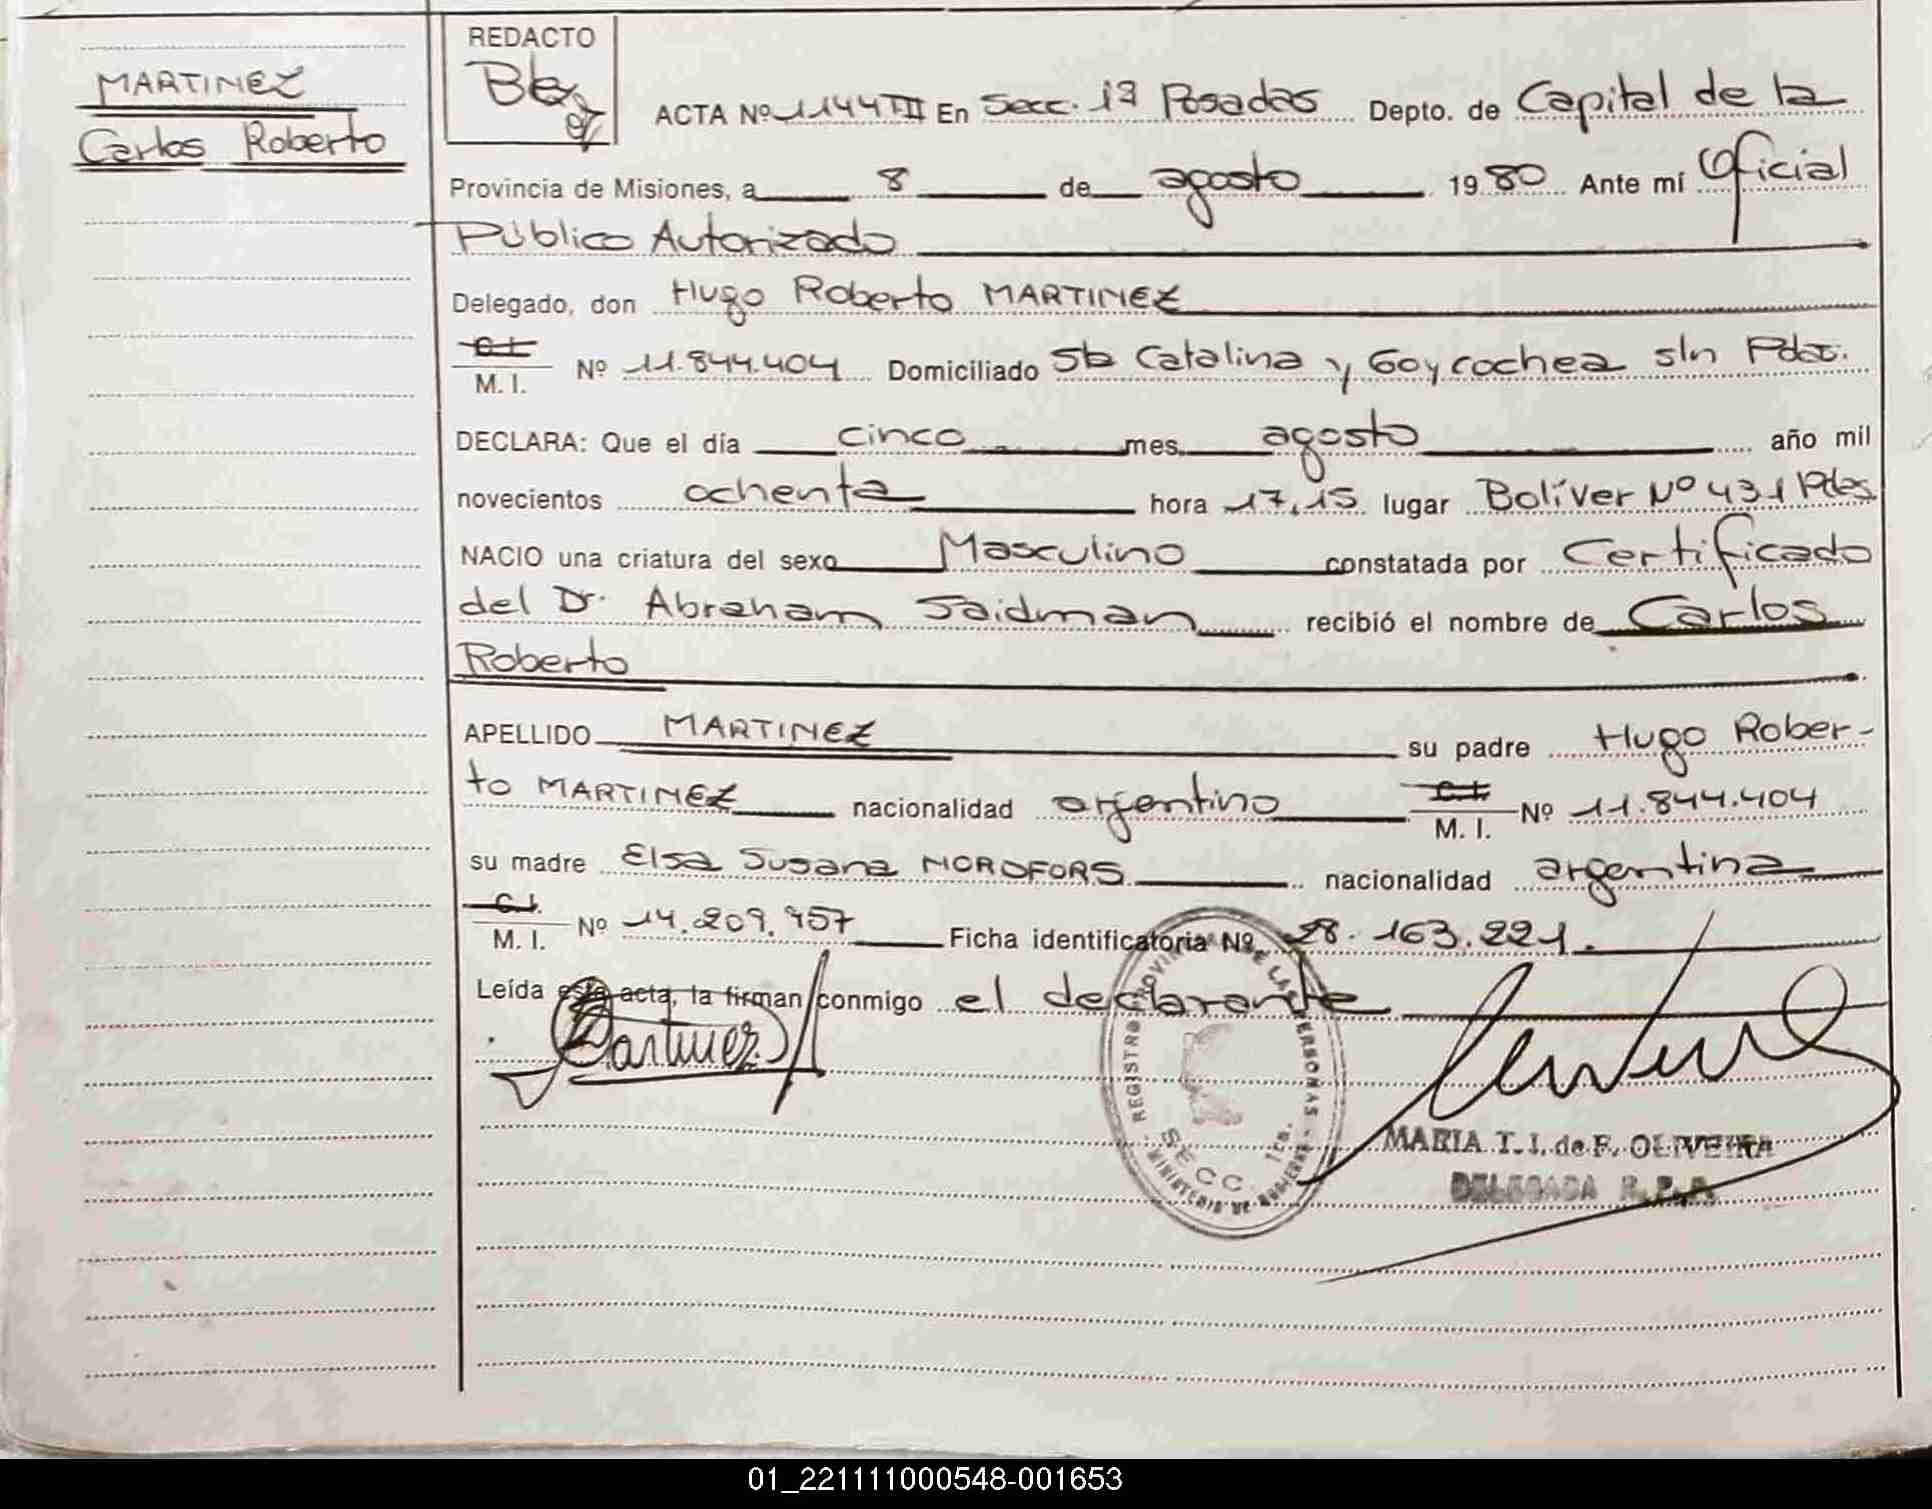 MARTINEZ
Carlos Roberto
REDACTO
ACTA Nº 1144 TIII En Secc. 1ª Posadas Depto. de Capital de la
Provincia de Misiones, a 8 de agosto 1980 Ante mí Oficial
Público Autorizado
Delegado, don Hugo Roberto MARTINEZ
C.I. M. I. Nº 11.844.404 Domiciliado Sta Catalina y Goycochea s/n Pdas.
DECLARA: Que el día cinco mes agosto año mil
novecientos ochenta hora 17,15 lugar Bolíver Nº 431 Pdas
NACIO una criatura del sexo Masculino constatada por Certificado
del Dr. Abraham Saidman recibió el nombre de Carlos
Roberto
APELLIDO MARTINEZ su padre Hugo Rober-
to MARTINEZ nacionalidad argentino C.I. M. I. Nº 11.844.404
su madre Elsa Susana MOROFORS nacionalidad argentina
C.I. M. I. Nº 14.209.957 Ficha identificatoria Nº 28.163.221.
Leída esta acta, la firman conmigo el declarante
Martinez
REGISTRO PROVINCIAL DE LAS PERSONAS
SECC. 1ra.
MINISTERIO DE GOBIERNO
MARIA T. I. de F. OLIVEIRA
DELEGADA R. P. P.
01_221111000548-001653